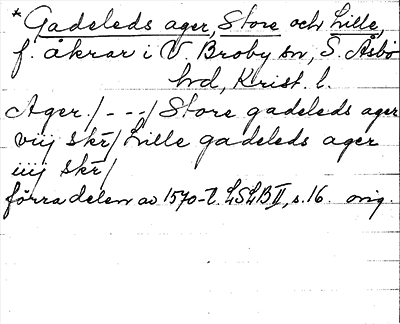 * Gadeleds ager, Store och Lille,
f. åkrar i V. Broby sn, S. Åsbo
hd, Krist. l.
Ager. / - - - / Store gadeleds ager
viij skr̄ / Lille gadeleds ager
iiij skr̄ /
förra delen av 1570-t. LSLB II, s. 16. orig.